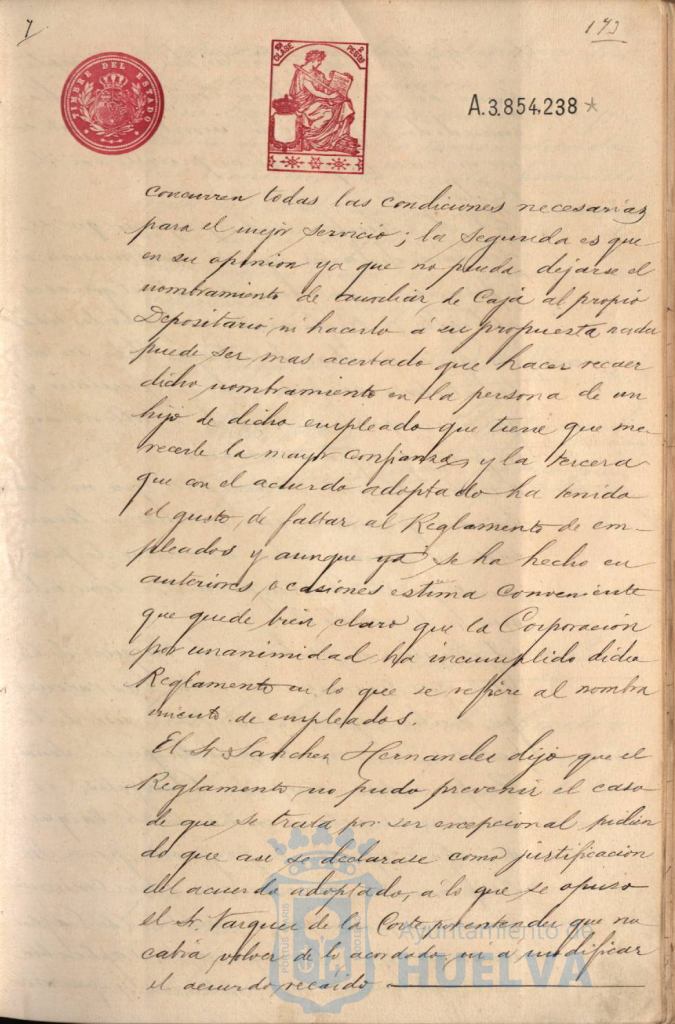 7
173
TIMBRE DEL ESTADO
CLASE PESETAS
A.3.854.238 *
concurren todas las condiciones necesarias
para el mejor servicio; la segunda es que
en su opinion ya que no pueda dejarse el
nombramiento de auxiliar de Caja al propio
Depositario, ni hacerlo á su propuesta nada
puede ser mas acertado que hacer recaer
dicho nombramiento en la persona de un
hijo de dicho empleado que tiene que me-
recerle la mayor confianza, y la tercera
que con el acuerdo adoptado ha tenido
el gusto, de faltar al Reglamento de em-
pleados y aunque ya se ha hecho en
anteriores ocasiones estima conveniente
que quede bien claro que la Corporación
por unanimidad ha incumplido dicho
Reglamento en lo que se refiere al nombra
miento de empleados.
El Sr. Sanchez Hernandez dijo que el
Reglamento no pudo prevenir el caso
de que se trata por ser excepcional pidien
do que asi se declarase como justificacion
del acuerdo adoptado, á lo que se opuso
el Sr. Vazquez de la Corte por entender que no
cabia volver de lo acordado, ni a modificar
el acuerdo recaido
Ayuntamiento de
HUELVA